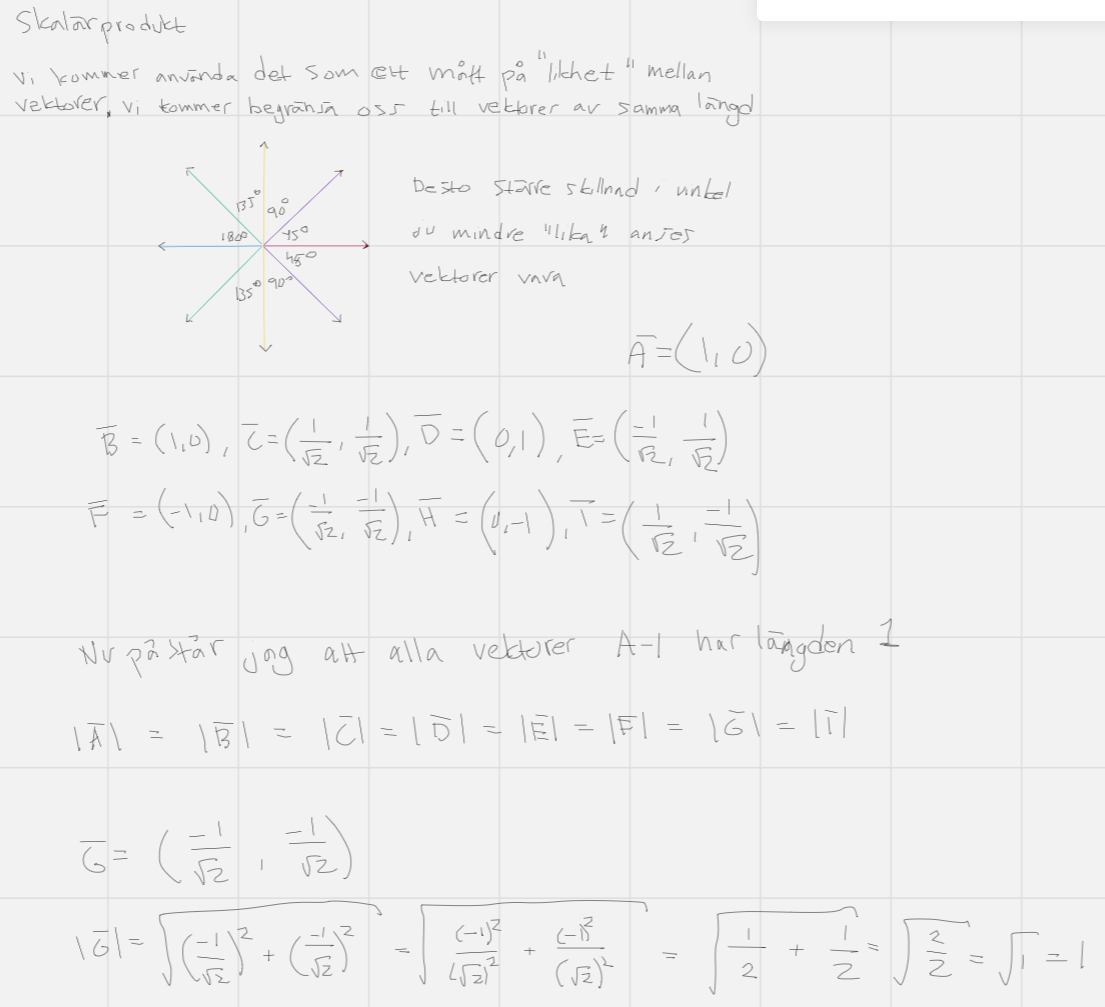 Skalärprodukt
Vi kommer använda det som ett mått på "likhet" mellan
vektorer. Vi kommer begränsa oss till vektorer av samma längd
135° 90°
180° 45°
45°
135° 90°
Desto större skillnad i vinkel
ju mindre "lika" anses
vektorer vara
A̅ = (1, 0)
B̅ = (1,0), C̅ = (1/√2, 1/√2), D̅ = (0,1), E̅ = (-1/√2, 1/√2)
F̅ = (-1,0), G̅ = (-1/√2, -1/√2), H̅ = (0,-1), I̅ = (1/√2, -1/√2)
Nu påstår jag att alla vektorer A-I har längden 1
|A̅| = |B̅| = |C̅| = |D̅| = |E̅| = |F̅| = |G̅| = |I̅|
G̅ = (-1/√2, -1/√2)
|G̅| = √((-1/√2)² + (-1/√2)²) = √((-1)²/(√2)² + (-1)²/(√2)²) = √(1/2 + 1/2) = √(2/2) = √1 = 1